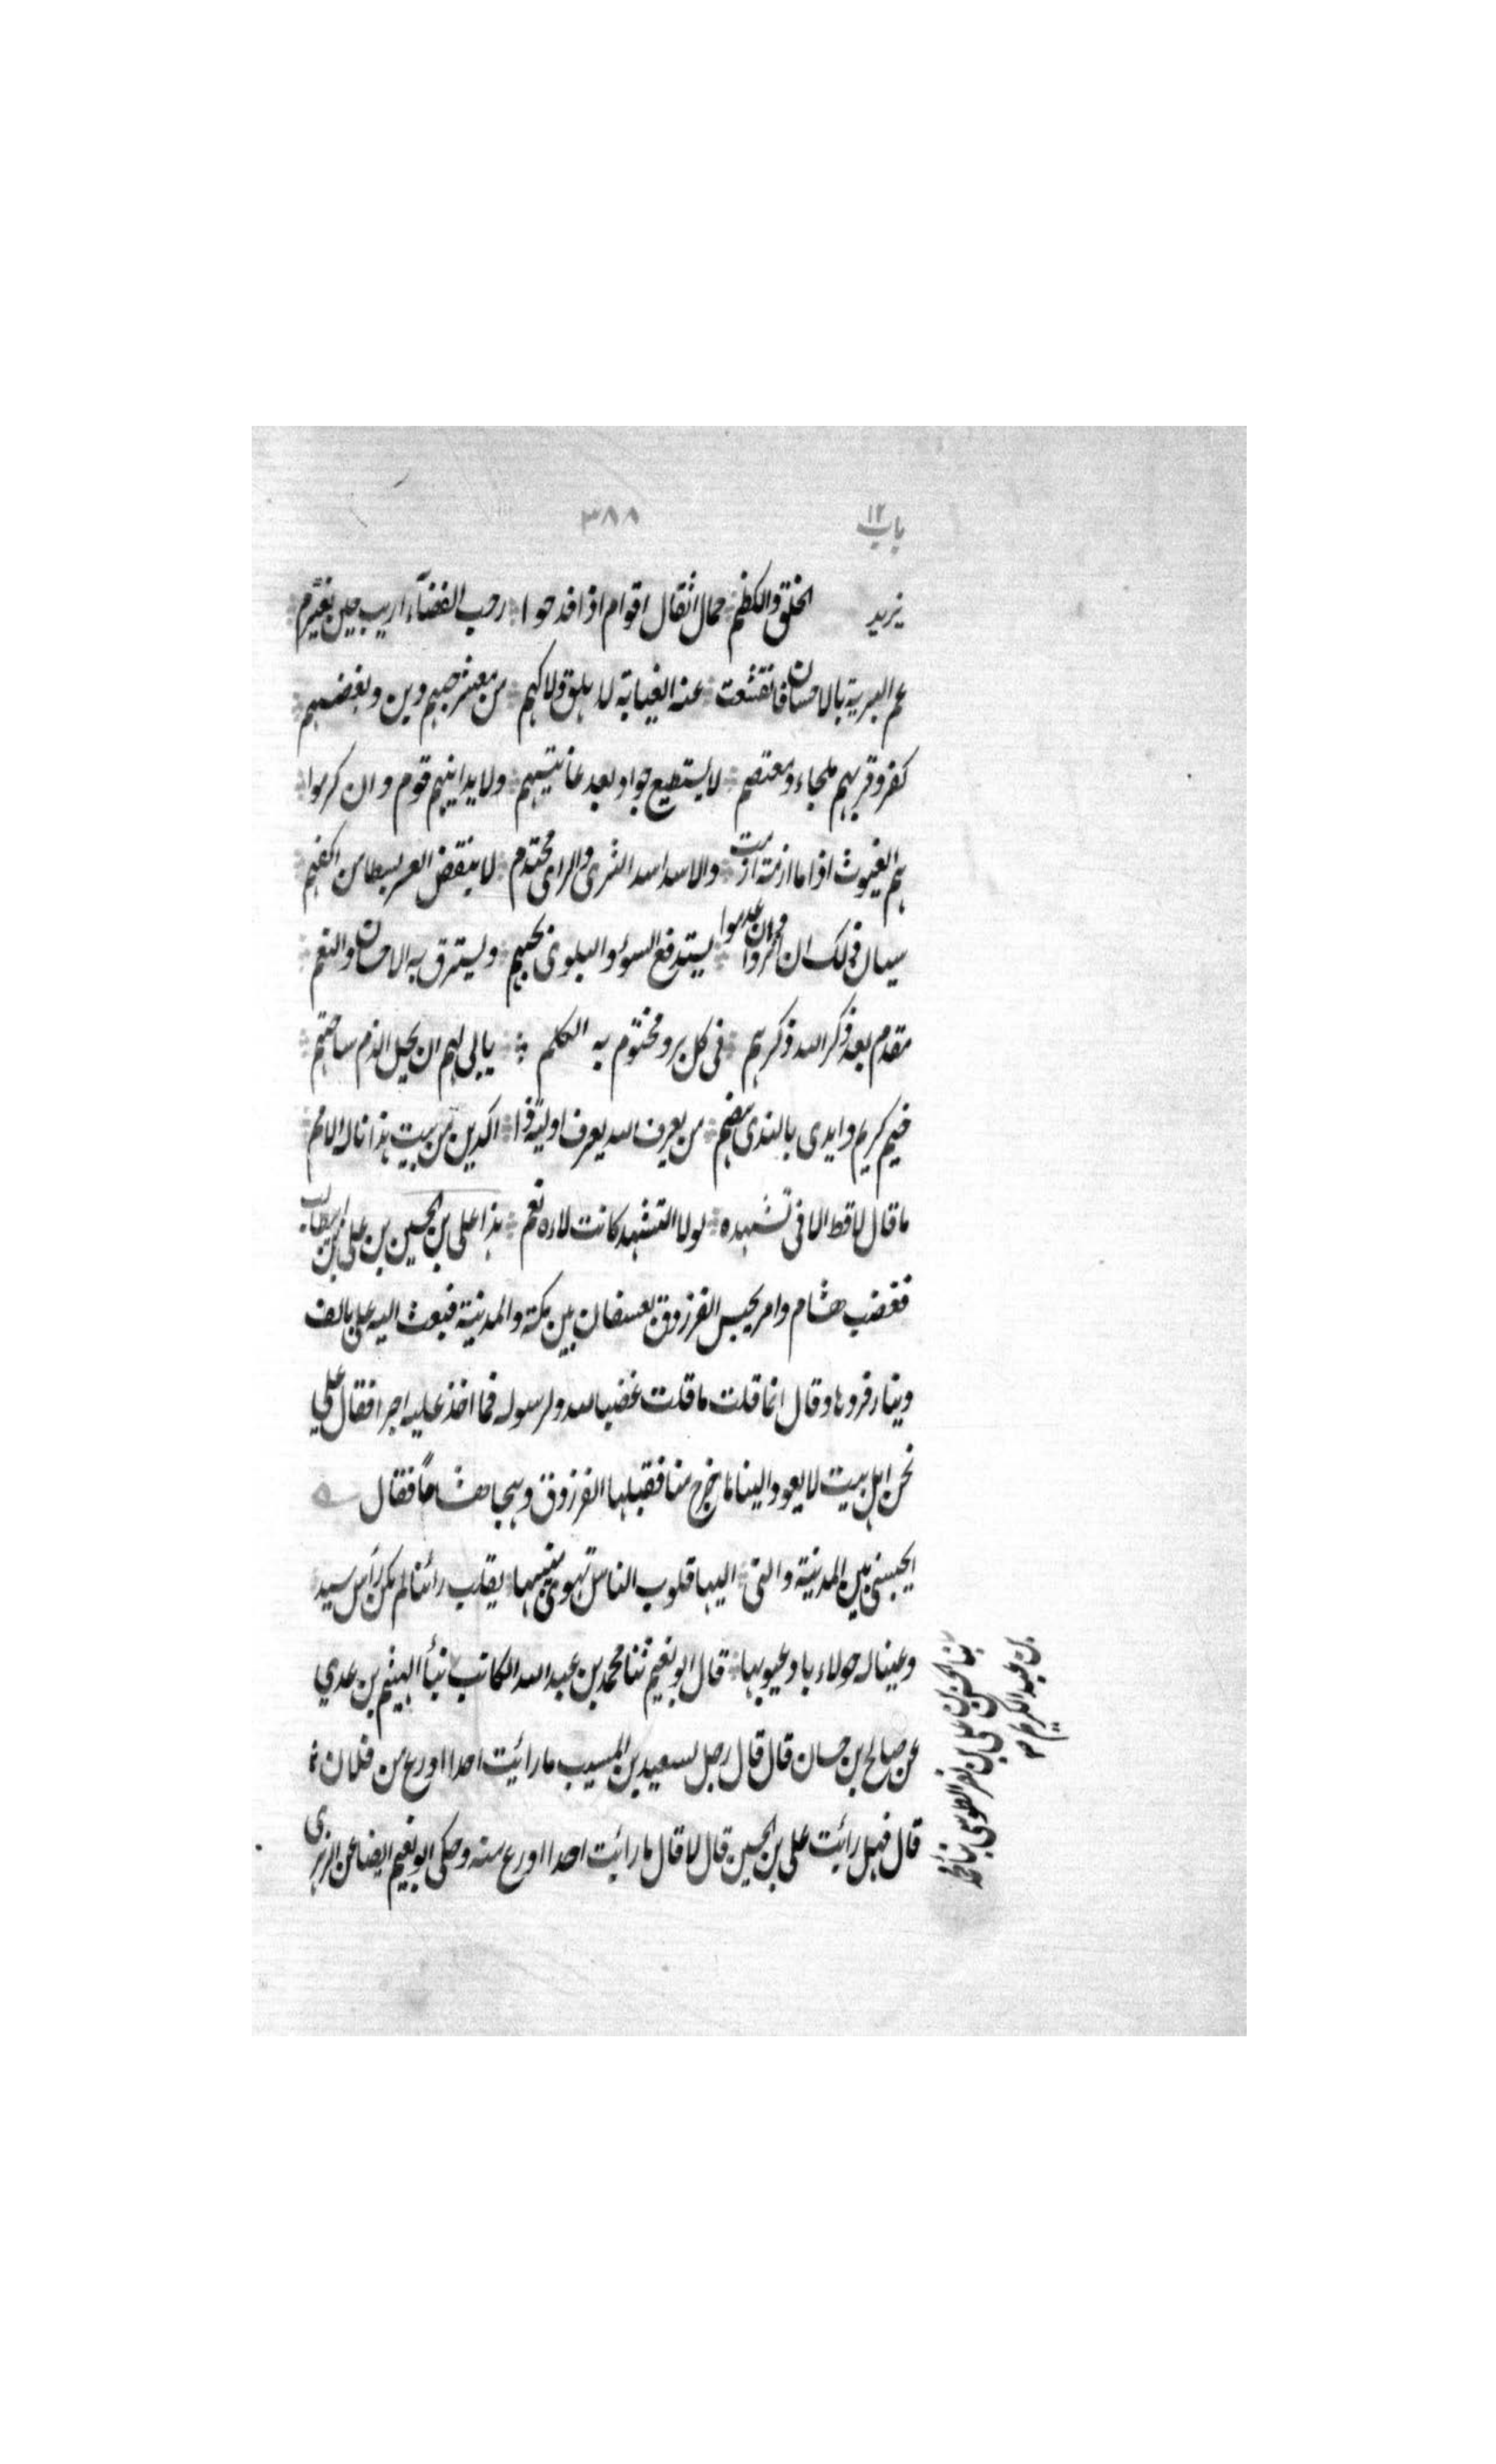 باب ١٢
٣٨٨
يزيد الخلق والكظم حمال اثقال اقوام اذا فدحوا رحب الفضآء اريب حين يعتزم
عم البرية بالاحسان فانقشعت عنه الغيابة لا يملق ولا كهم من معشر حبهم دين وبغضهم
كفر وقربهم ملجاء ومعتصم لا يستطيع جواد بعد غايتهم ولا يدانيهم قوم وان كرموا
هم الغيوث اذا ما ازمة ازمت والاسد اسد الشرى والراى محتدم لا ينقض العسر بسطا من اكفهم
سيان ذلك ان اثروا وان عدموا يستدفع السوء والبلوى بحبهم ويسترق به الاحسان والنعم
مقدم بعد ذكر الله ذكرهم فى كل بر ومختوم به الكلم يابى لهم ان يحل الذم ساحتهم
خيم كريم وايدى بالندى هضم من يعرف الله يعرف اولية ذا الدين من بيت هذا ناله الامم
ما قال لا قط الا فى تشهده لولا التشهد كانت لاءه نعم هذا على بن الحسين بن على بن ابيطالب
فغضب هشام وامر بحبس الفرزدق بعسفان بين مكة والمدينة فبعث اليه على بالف
دينار فردها وقال انما قلت ما قلت غضبا لله ولرسوله فما اخذ عليه اجرا فقال على
نحن اهل بيت لا يعود الينا ما خرج منا فقبلها الفرزدق وهجا هشاما فقال
ايحبسنى بين المدينة والتى اليها قلوب الناس تهوى منيبها يقلب رائسا لم يكن رأس سيد
وعينا له حولاء باد عيوبها قال ابو نعيم ثنا محمد بن عبد الله الكاتب نبأ الهيثم بن عدي
عن صالح بن حسان قال قال رجل لسعيد بن المسيب ما رائيت احدا اورع من فلان
قال فهل رائيت على بن الحسين قال لا قال ما رائيت احدا اورع منه وحكى ابو نعيم ايضا عن الزهرى
ثنا الحسن بن على بن نصر الطوسى ثنا محمد
بن عبد الكريم